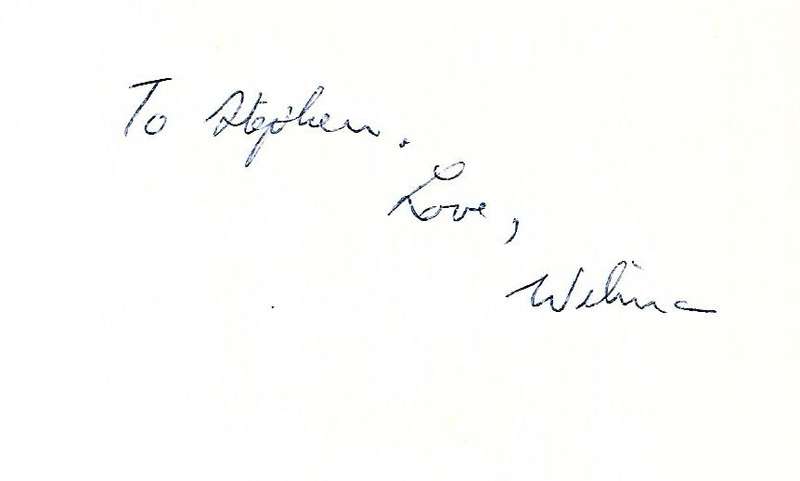 To Stephen.
Love,
Wilma